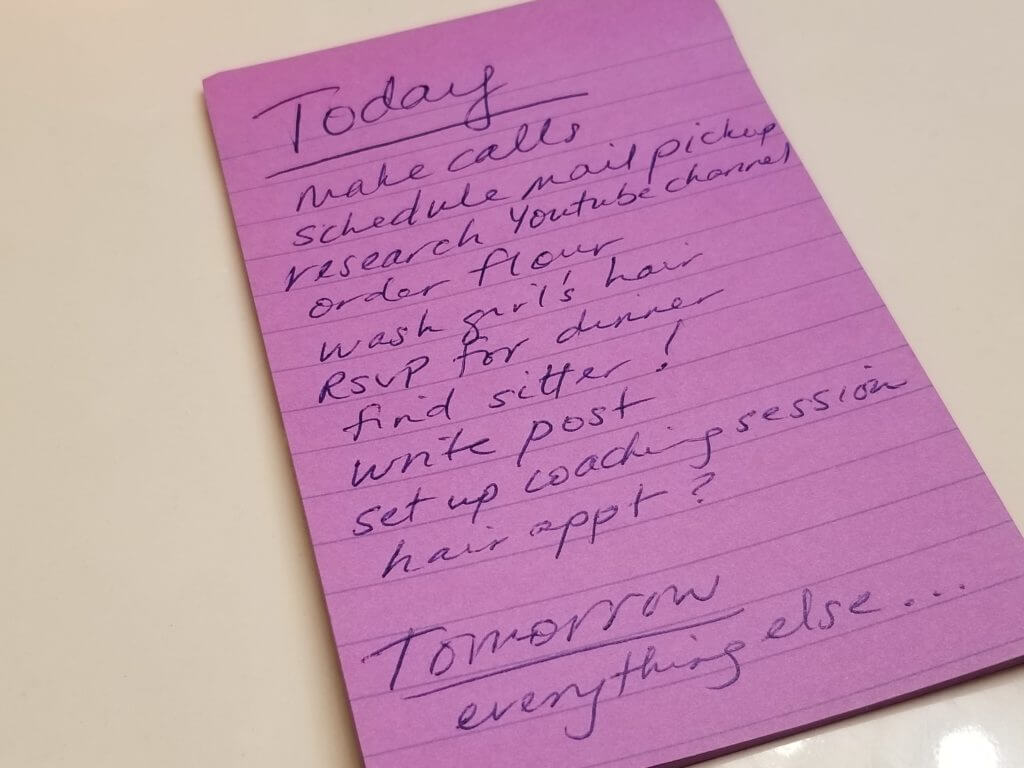 Today
make calls
schedule mail pickup
research Youtube channel
order flour
wash girl's hair
RSVP for dinner
find sitter!
write post
set up coaching session
hair appt?
Tomorrow
everything else...